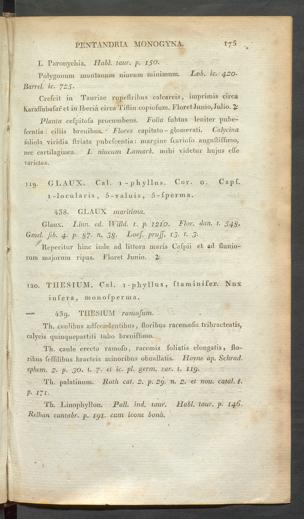 PENTANDRIA MONOGYNA. 175
I. Paronychia. Habl. taur. p. 150.
Polygonum montanum niueum minimum. Lob. ic. 420.
Barrel. ic. 725.
Crescit in Tauriae rupestribus calcareis, inprimis circa
Karassubasar et in Iberiâ circa Tiflin copiosum. Floret Junio, Julio. ♃
Planta cespitosa procumbens. Folia subtus leniter pube-
scentia: ciliis breuibus. Flores capitato-glomerati. Calycina
foliola viridia striata pubescentia: margine scarioso angustissimo,
nec cartilagineo. I. niueum Lamark. mihi videtur hujus esse
varietas.
119. GLAUX. Cal. 1-phyllus. Cor. 0. Caps.
1-locularis, 5-valuis, 5-sperma.
438. GLAUX maritima.
Glaux. Linn. ed. Willd. t. p. 1210. Flor. dan. t. 548.
Gmel. sib. 4. p. 87. n. 38. Loes. pruss. 13. t. 3.
Reperitur hinc inde ad littora maris Caspii et ad fluuio-
rum majorum ripas. Floret Junio. ♃
120. THESIUM. Cal. 1-phyllus, staminifer. Nux
infera, monosperma.
— 439. THESIUM ramosum.
Th. caulibus adscendentibus, floribus racemosis tribracteatis,
calycis quinquepartiti tubo breuissimo.
Th. caule erecto ramoso, racemis foliatis elongatis, flo-
ribus sessilibus bracteis minoribus obuallatis. Hayne ap. Schrad.
ephem. 2. p. 30. t. 7. et ic. pl. germ. rar. t. 119.
Th. palatinum. Roth cat. 2. p. 29. n. 2. et nou. catal. t.
p. 171.
Th. Linophyllon. Pall. ind. taur. Habl. taur. p. 146.
Relhan cantabr. p. 191. cum icone bonâ.